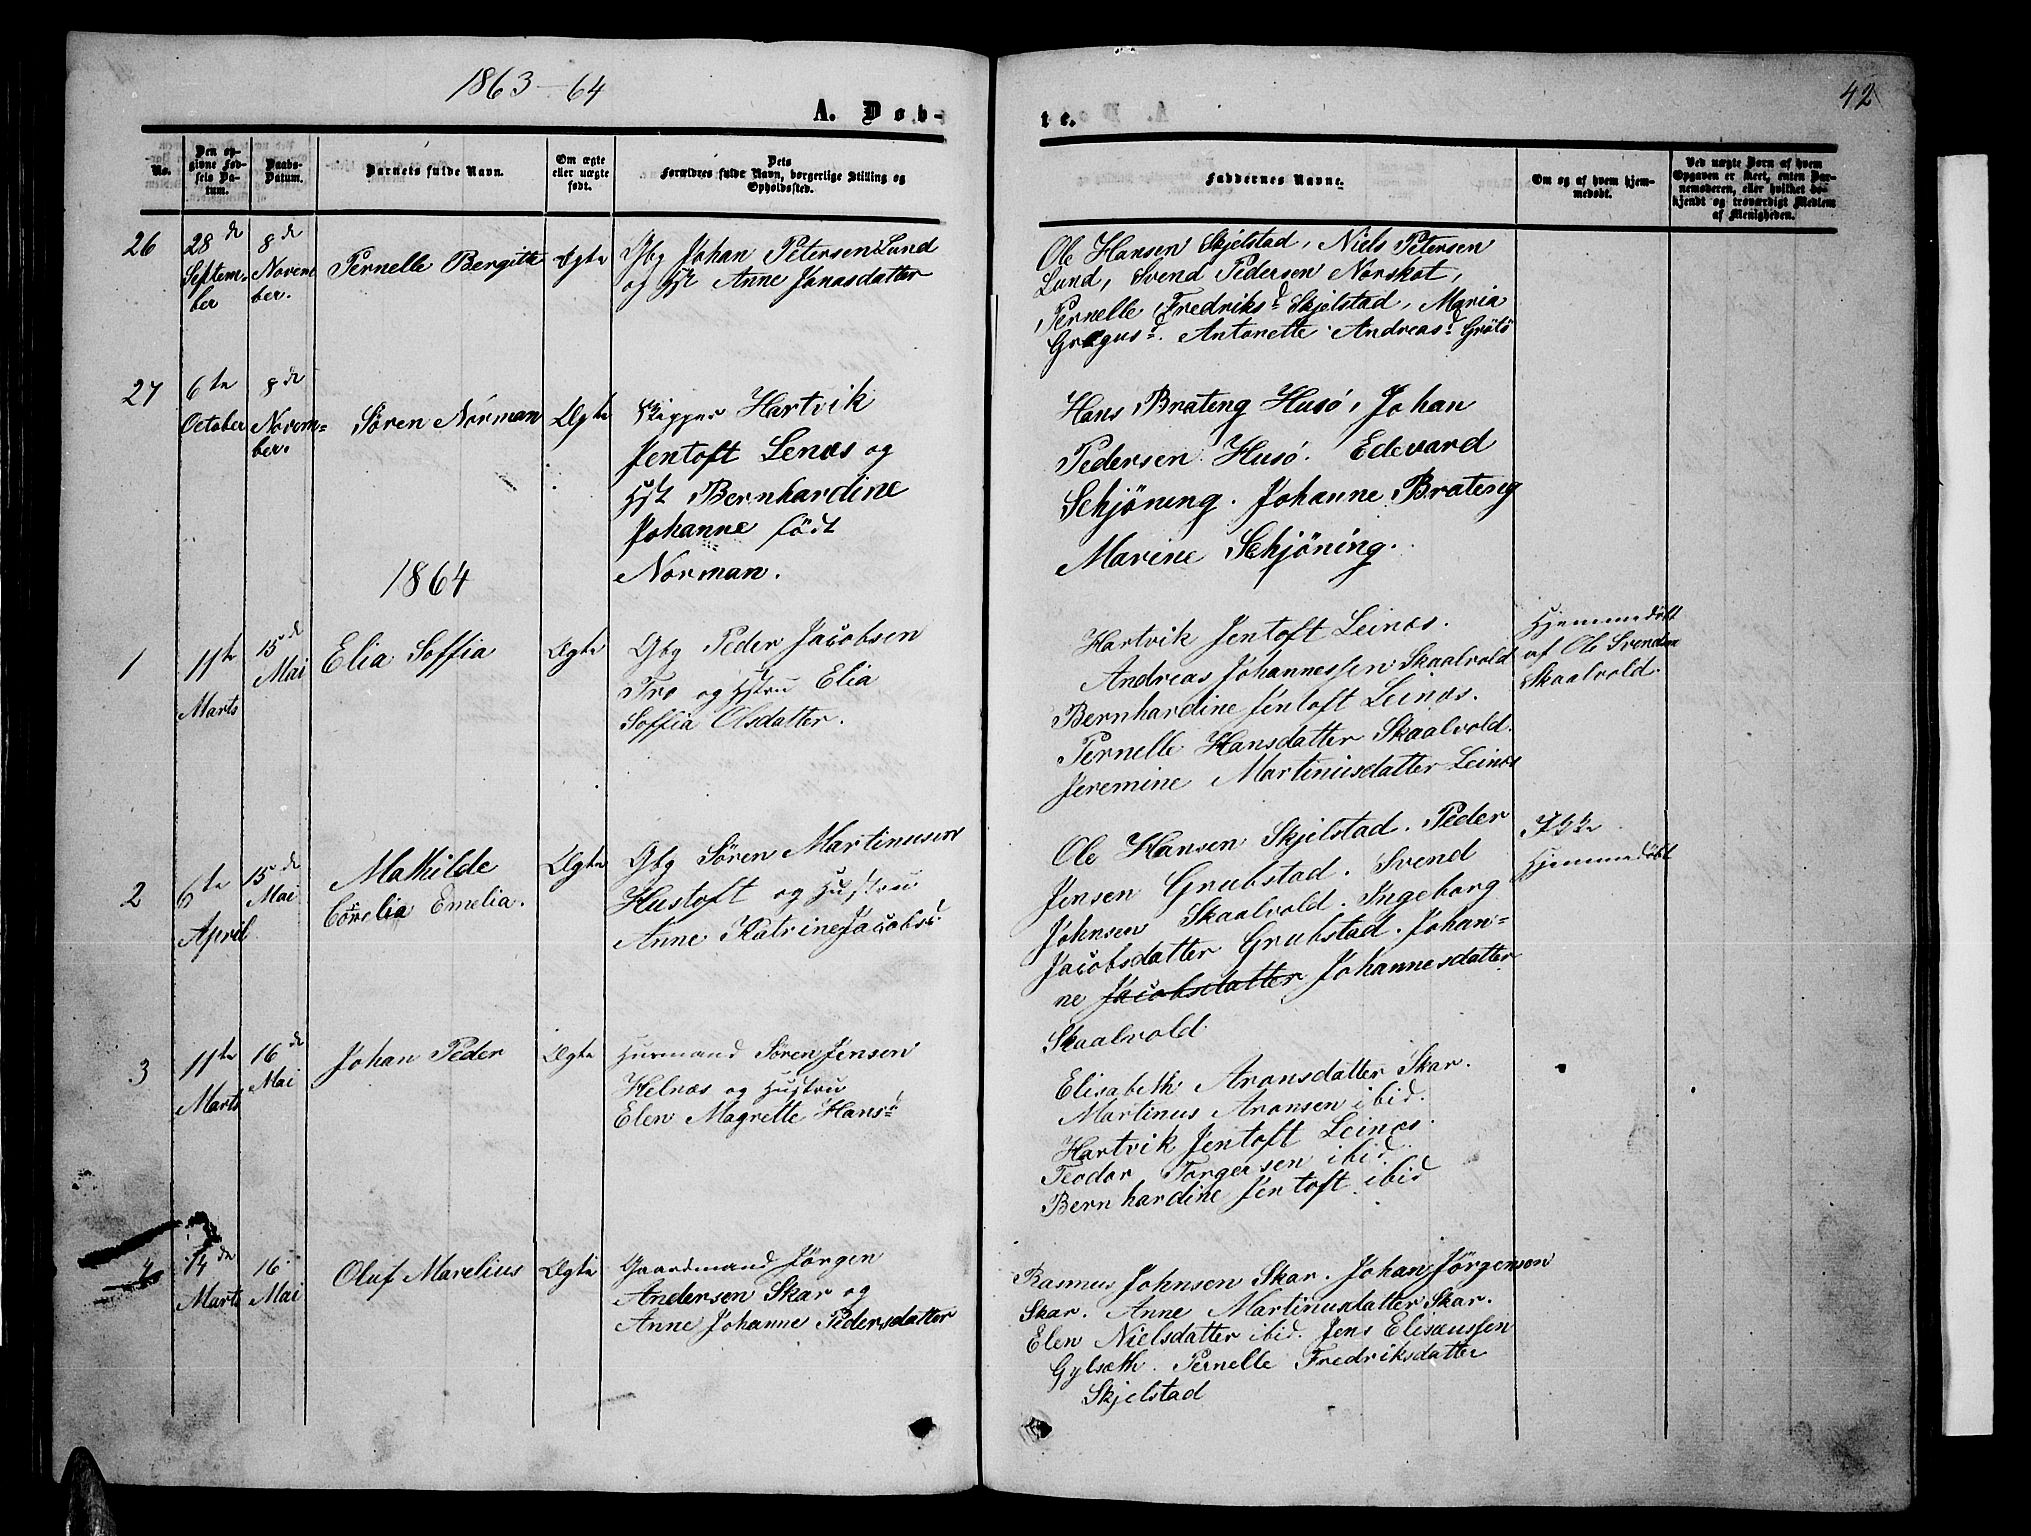 1863-64
42
A. Döb-
te.
No.
Den op-
givne Fød-
sels Da-
tum.
Daabs-
Datum.
Barnets fulde Navn.
Om ægte
eller uægte
født.
Dets
Forældres fulde Navn, borgerlige Stilling og
Opholdssted.
Faddernes Navne.
Om og af hvem hjem-
medøbt.
Ved uægte Børn af hvem
Opgaven er skeet, enten Bar-
nemoderen, eller hvilket be-
kjendt og troværdigt Medlem
af Menigheden.
26
28de
Septem-
ber
8de
Novem
ber.
Pernelle Bergitte
Ægte
Gbg Johan Petersen Lund
og Hst Anne Jonasdatter
Ole Hansen Skjelstad, Niels Petersen
Lund, Svend Pedersen Norskot,
Pernelle Fredriksd Skjelstad, Maria
Gregusd. Antonette Andreasd Grøtø
27
6te
October
8de
Novem=
ber.
Søren Norman
Ægte
Skipper Hartvik
Jentoft Lenæs og
Hst Bernhardine
Johanne født
Norman.
Hans Brateng Husø, Johan
Pedersen Husø. Edevard
Schjöning. Johanne Brateng
Marine Schjöning.
1864
1
11te
Marts
15de
Mai
Elia Soffia
Ægte
Gbg Peder Jacobsen
Tro og Hstru Elia
Soffia Olsdatter.
Hartvik Jentoft Leinæs.
Andreas Johannessen Skaalvold
Bernhardine Jentoft Leinæs.
Pernelle Hansdatter Skaalvold.
Jeremine Martinusdatter Leinæs
Hjemmedøbt
af Ole Svendsen
Skaalvold.
2
6te
April
15de
Mai
Mathilde
Corelia Emelia.
Ægte
Gbg Søren Martinusen
Hustoft og Hustru
Anne Katrine Jacobsd.
Ole Hansen Skjelstad. Peder
Jensen Grubstad. Svend
Johnsen Skaalvold. Ingeborg
Jacobsdatter Grubstad. Johan=
ne Jacobsdatter Johannesdatter
Skaalvold.
Ikke
Hjemmedøbt
3
11te
Marts
16de
Mai
Johan Peder
Ægte
Huusmand Søren Jensen
Helnæs og Hustru
Elen Magrette Hansd
Elisabeth Aronsdatter Skar.
Martinus Aronsen ibid.
Hartvik Jentoft Leinæs.
Teodor Torgersen ibid.
Bernhardine Jentoft ibid
4
14de
Marts
16.
Mai
Oluf Marelius
Ægte
Gaardmand Jørgen
Andersen Skar og
Anne Johanne Pedersdatter
Rasmus Johnsen Skar. Johan Jørgensen
Skar. Anne Martinusdatter Skar.
Elen Nielsdatter ibid. Jens Elisæussen
Gylseth. Pernelle Fredriksdatter
Skjelstad